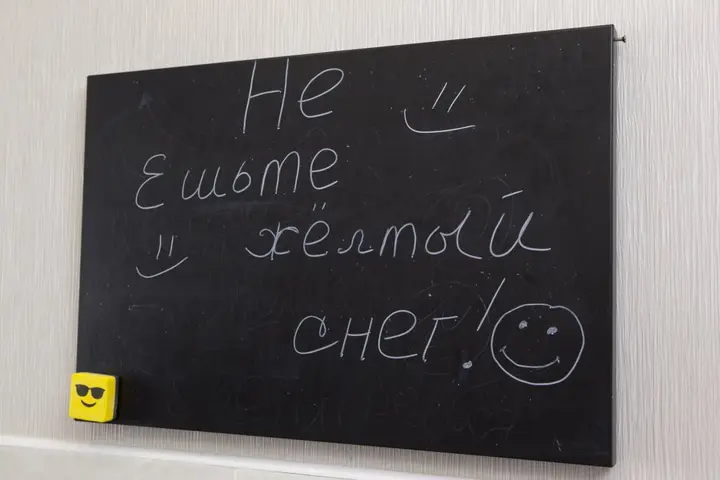 Не
Ешьте
жёлтый
снег!